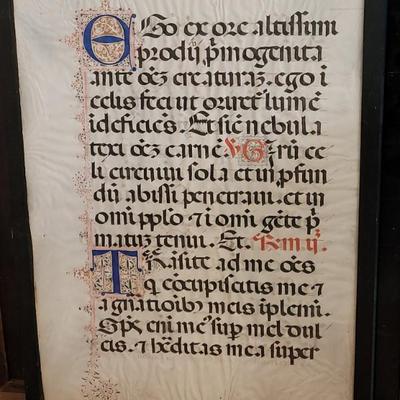 Ego ex ore altissimi
prodij p̃mogenita
ante oẽz creaturaz. ego ĩ
celis feci ut oriret᷑ lumẽ
ideficiẽs. Et sic̃ nebula
texi oẽz carnẽ. V Girũ ce
li circuiui sola et in p̃fun
dũ abissi penetraui. et in
omi pplo ⁊ i omi gẽte p̃
matuz tenui. Et. Rem ij.
Trãsite ad me oẽs
q̃ cõcupiscitis me ⁊
a gñatioĩb᷒ meis iplemi.
Sp̃s eni me᷒ sup̃ mel dul
cis. ⁊ hẽditas mea super